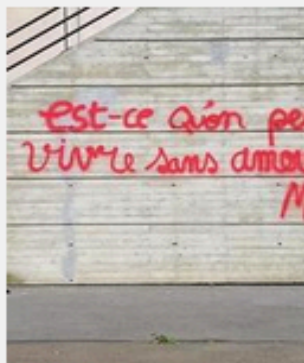 est-ce qu'on pe
vivre sans amou
M